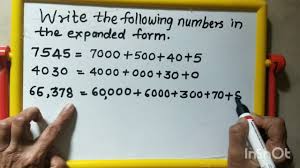 Write the following numbers in
the expanded form.
7545 = 7000+500+40+5
4030 = 4000+000+30+0
65,378 = 60,000+6000+300+70+
InShot